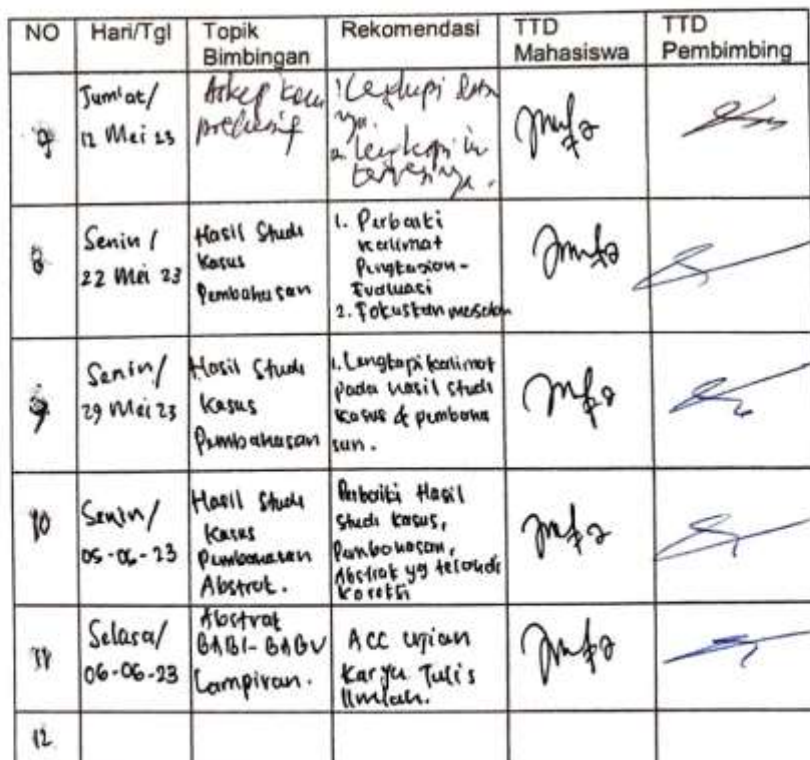 NO Hari/Tgl Topik Bimbingan Rekomendasi TTD Mahasiswa TTD Pembimbing
Jum'at/
12 Mei 23
1. Lengkapi
2. Lengkapi in
8 Senin /
22 Mei 23
Hasil Studi
Kasus
Pembahasan
1. Perbaiki
kalimat
Pengkajian -
Evaluasi
2. Fokuskan masalah
9 Senin/
29 Mei 23
Hasil Studi
Kasus
Pembahasan
1. Lengkapi kalimat
pada hasil studi
kasus & pembaha
san.
10 Senin/
05-06-23
Hasil Studi
Kasus
Pembahasan
Abstrak.
Perbaiki Hasil
Studi kasus,
Pembahasan,
Abstrak yg telah di
koreksi
11 Selasa/
06-06-23
Abstrak
BAB I - BAB V
Lampiran.
ACC Ujian
Karya Tulis
Ilmiah.
12